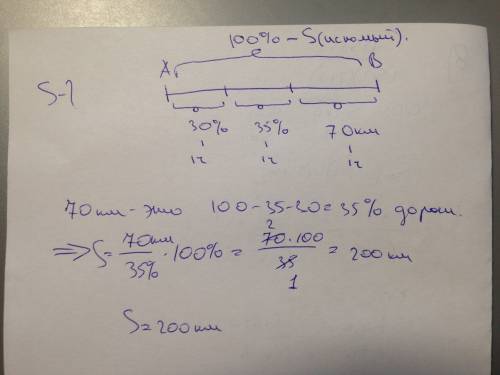 100% - S(искомый).
A B
S-?
30% 35% 70км
1ч 1ч 1ч
70км - это 100-35-30=35% дороги.
⟹ S = 70км/35% · 100% = 70·100/35 = 200км
2
1
S=200км